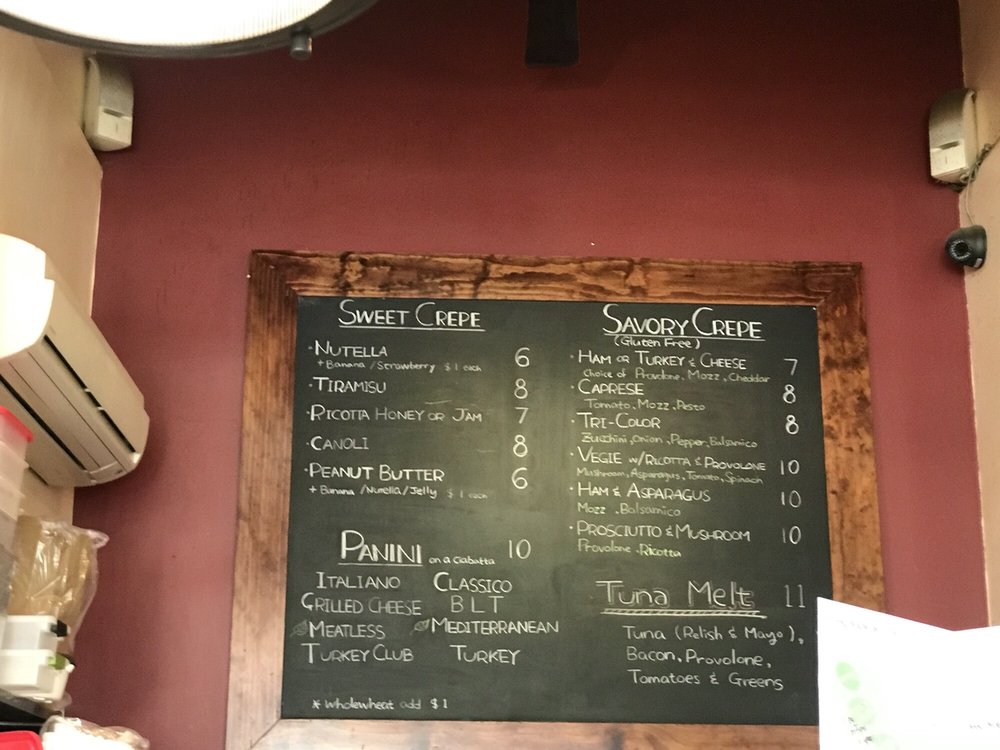 SWEET CREPE
· NUTELLA 6
+ Banana / Strawberry $1 each
· TIRAMISU 8
· RICOTTA HONEY OR JAM 7
· CANOLI 8
· PEANUT BUTTER 6
+ Banana / Nutella / Jelly $1 each
PANINI on a ciabatta 10
ITALIANO CLASSICO
GRILLED CHEESE BLT
MEATLESS MEDITERRANEAN
TURKEY CLUB TURKEY
* wholewheat add $1
SAVORY CREPE
(Gluten Free)
· HAM OR TURKEY & CHEESE 7
Choice of Provolone, Mozz, Cheddar
· CAPRESE 8
Tomato, Mozz, Pesto
· TRI-COLOR 8
Zucchini, Onion, Pepper, Balsamico
· VEGIE W/RICOTTA & PROVOLONE 10
Mushroom, Asparagus, Tomato, Spinach
· HAM & ASPARAGUS 10
Mozz, Balsamico
· PROSCIUTTO & MUSHROOM 10
Provolone, Ricotta
Tuna Melt 11
Tuna (Relish & Mayo),
Bacon, Provolone,
Tomatoes & Greens